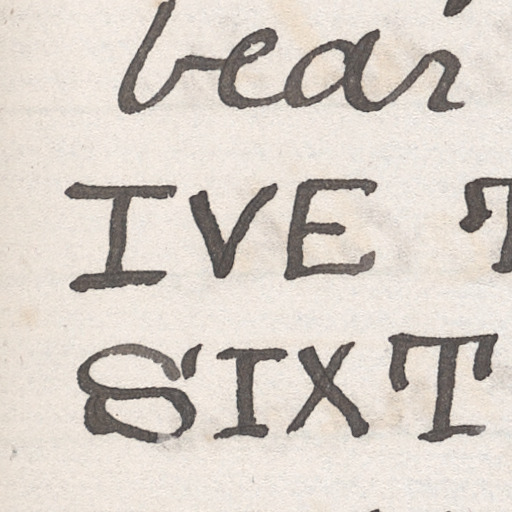 bear
IVE T
SIXT